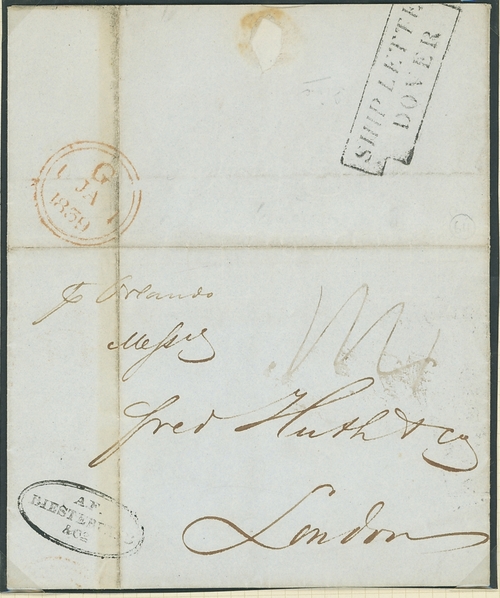 SHIP LETTE
DOVER
G
1 JA 1
1839
p Orlando
Messrs
Fred Huth & Co
London
A.F.
& Co